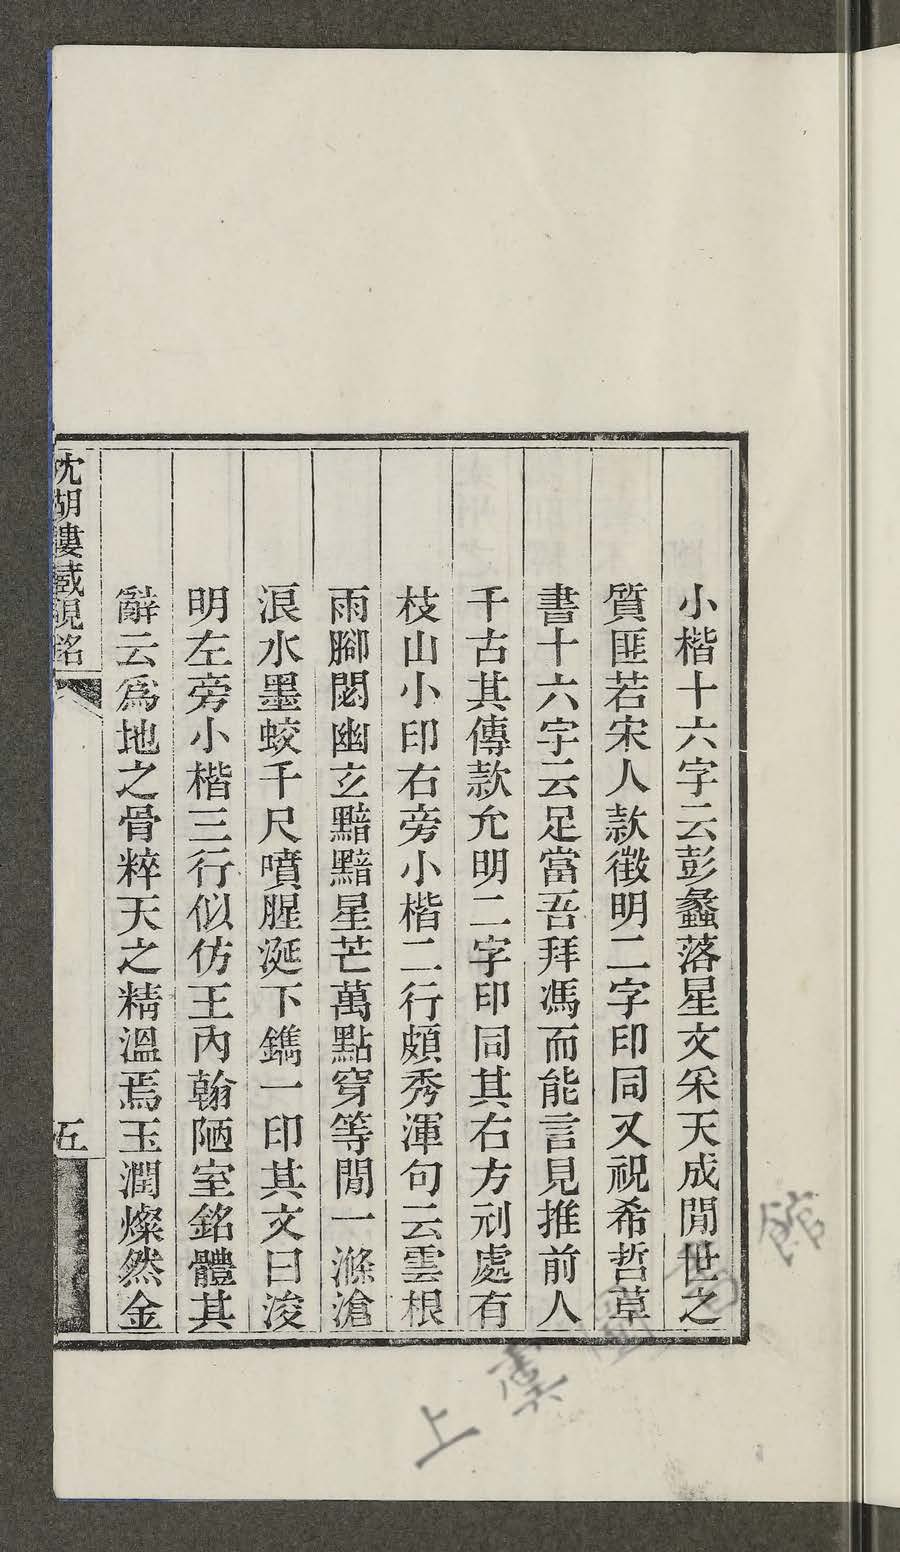 小楷十六字云彭蠡落星文采天成閒世之
質匪若宋人款徵明二字印同又祝希哲草
書十六字云足當吾拜馮而能言見推前人
千古其傳款允明二字印同其右方刓處有
枝山小印右旁小楷二行頗秀渾句云雲根
雨腳閟幽玄黯黯星芒萬點穿等閒一滌滄
浪水墨蛟千尺噴腥涎下鐫一印其文曰浚
明左旁小楷三行似仿王內翰陋室銘體其
辭云爲地之骨粹天之精溫焉玉潤燦然金
沈湖樓藏硯銘
五
上虞圖書館